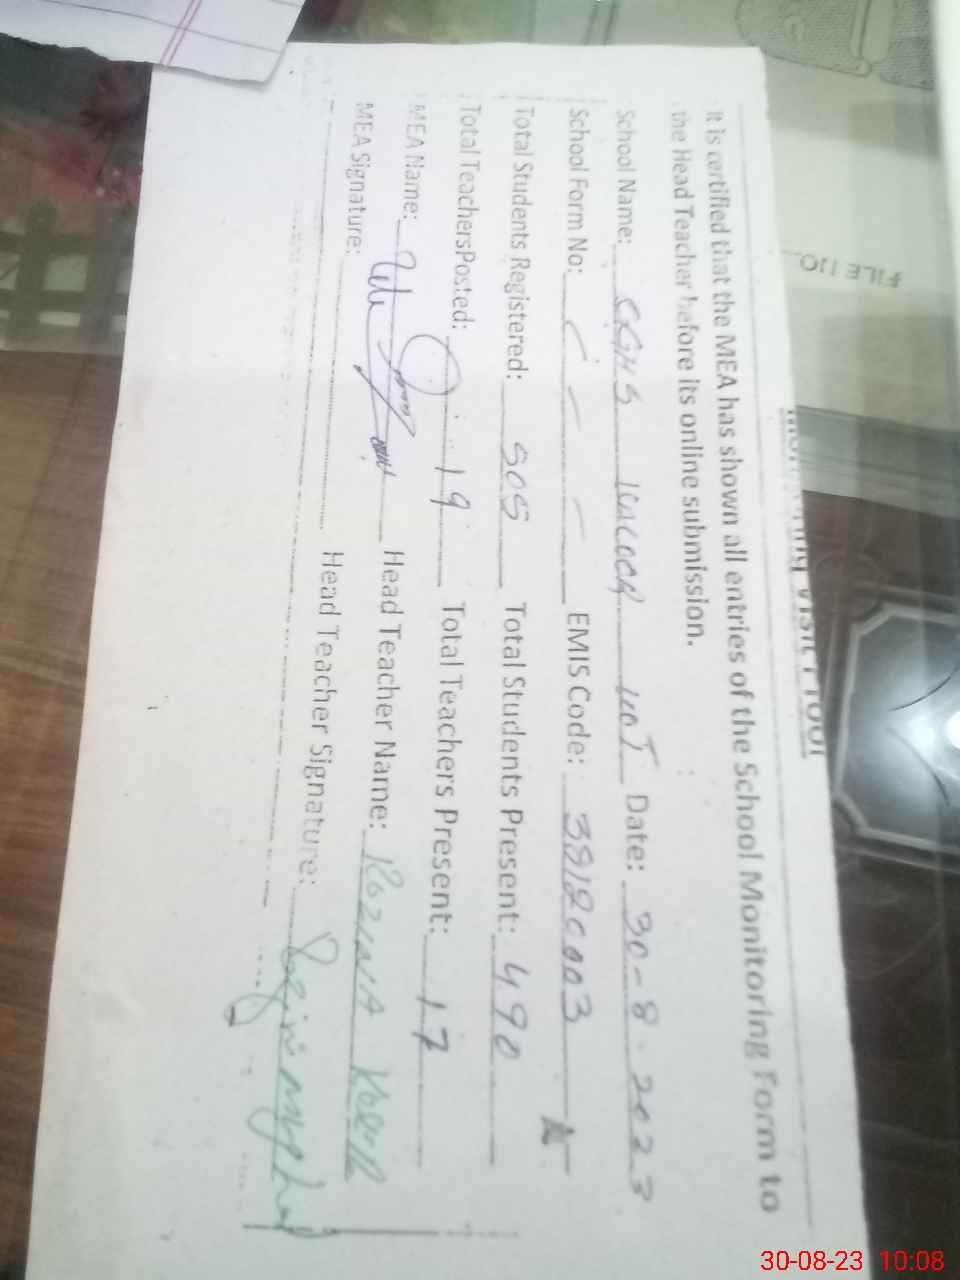 Monitoring Visit Proof
It is certified that the MEA has shown all entries of the School Monitoring Form to
the Head Teacher before its online submission.
School Name: GGHS Date: 30-8-2023
School Form No: EMIS Code: 39120003
Total Students Registered: 505 Total Students Present: 490
Total Teachers Posted: 19 Total Teachers Present: 17
MEA Name: Head Teacher Name: Rozina
MEA Signature: Head Teacher Signature:
FILE NO
30-08-23 10:08